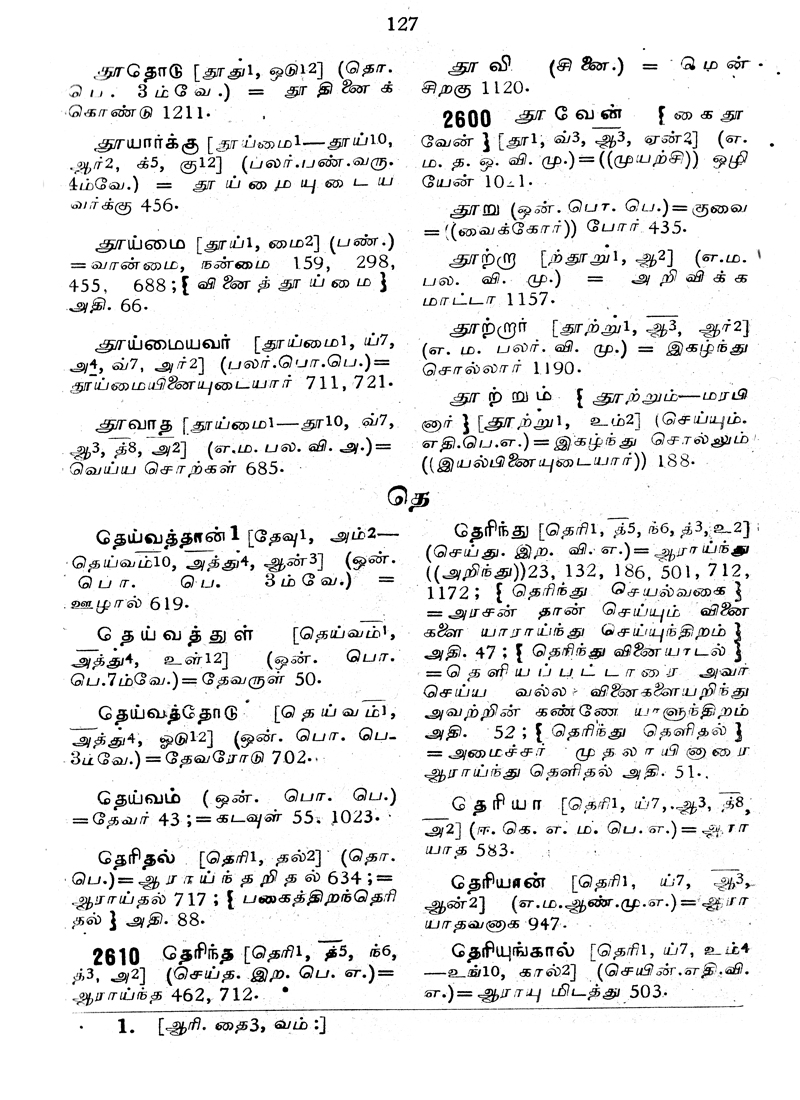 127
தூதொடு [தூது1, ஒடு12] (தொ.
பெ. 3ம்வே.) = தூதினைக்
கொண்டு 1211.
தூயார்க்கு [தூய்மை1—தூய்10,
ஆர்2, க்5, கு12] (பலர்.பண்.வரு.
4ம்வே.) = தூய்மையுடைய
வர்க்கு 456.
தூய்மை [தூய்1, மை2] (பண்.)
=வான்மை, நன்மை 159, 298,
455, 688; { வினைத்தூய்மை }
அதி. 66.
தூய்மையவர் [தூய்மை1, ய்7,
அ4, வ்7, அர்2] (பலர்.பொ.பெ.)=
தூய்மையினையுடையார் 711, 721.
தூவாத [தூய்மை1—தூ10, வ்7,
ஆ3, த்8, அ2] (எ.ம. பல. வி. அ.)=
வெய்ய சொற்கள் 685.
தூவி (சினை.) = மென்
சிறகு 1120.
2600 தூவேன் { கைதூ
வேன் } [தூ1, வ்3, ஆ3, ஏன்2] (எ.
ம. த. ஒ. வி. மு.)=((முயற்சி)) ஒழி
யேன்
தூறு (ஒன். பொ. பெ.)=குவை
=((வைக்கோர்)) போர் 435.
தூற்றா [தூற்று1, ஆ2] (எ.ம.
பல. வி. மு.) = அறிவிக்க
மாட்டா 1157.
தூற்றார் [தூற்று1, ஆ3, ஆர்2]
(எ. ம. பலர். வி. மு.) = இகழ்ந்து
சொல்லார் 1190.
தூற்றும் { தூற்றும்—மரபி
னார் } [தூற்று1, உம்2] (செய்யும்.
எதி.பெ.எ.)=இகழ்ந்து சொல்லும்
((இயல்பினையுடையார்)) 188.
தெ
தெய்வத்தான்1 [தேவு1, அம்2—
தெய்வம்10, அத்து4, ஆன்3] (ஒன்.
பொ. பெ. 3ம்வே.) =
ஊழால் 619.
தெய்வத்துள் [தெய்வம்1,
அத்து4, உள்12] (ஒன். பொ.
பெ.7ம்வே.)=தேவருள் 50.
தெய்வத்தோடு [தெய்வம்1,
அத்து4, ஓடு12] (ஒன். பொ. பெ.
3ம்வே.)=தேவரோடு 702.
தெய்வம் (ஒன். பொ. பெ.)
=தேவர் 43;=கடவுள் 55, 1023.
தெரிதல் [தெரி1, தல்2] (தொ.
பெ.)=ஆராய்ந்தறிதல் 634;=
ஆராய்தல் 717; { பகைத்திறந்தெரி
தல் } அதி. 88.
2610 தெரிந்த [தெரி1, த்5, ந்6,
த்3, அ2] (செய்த. இற. பெ. எ.)=
ஆராய்ந்த 462, 712.
தெரிந்து [தெரி1, த்5, ந்6, த்3, உ2]
(செய்து. இற. வி. எ.)=ஆராய்ந்து
((அறிந்து))23, 132, 186, 501, 712,
1172; { தெரிந்து செயல்வகை }
=அரசன் தான் செய்யும் வினை
களை யாராய்ந்து செய்யுந்திறம் }
அதி. 47; { தெரிந்து வினையாடல் }
=தெளியப்பட்டாரை அவர்
செய்ய வல்ல வினைகளையறிந்து
அவற்றின் கண்ணே யாளுந்திறம்
அதி. 52; { தெரிந்து தெளிதல் }
=அமைச்சர் முதலாயினாரை
ஆராய்ந்து தெளிதல் அதி. 51.
தெரியா [தெரி1, ய்7, ஆ3, த்8,
அ2] (ஈ. கெ. எ. ம. பெ. எ.)=ஆரா
யாத 583.
தெரியான் [தெரி1, ய்7, ஆ3,
ஆன்2] (எ.ம.ஆண்.மு.எ.)=ஆரா
யாதவனாக 947.
தெரியுங்கால் [தெரி1, ய்7, உம்4
—உங்10, கால்2] (செயின்.எதி.வி.
எ.)=ஆராயு மிடத்து 503.
1. [ஆரி. தை3, வம்:]